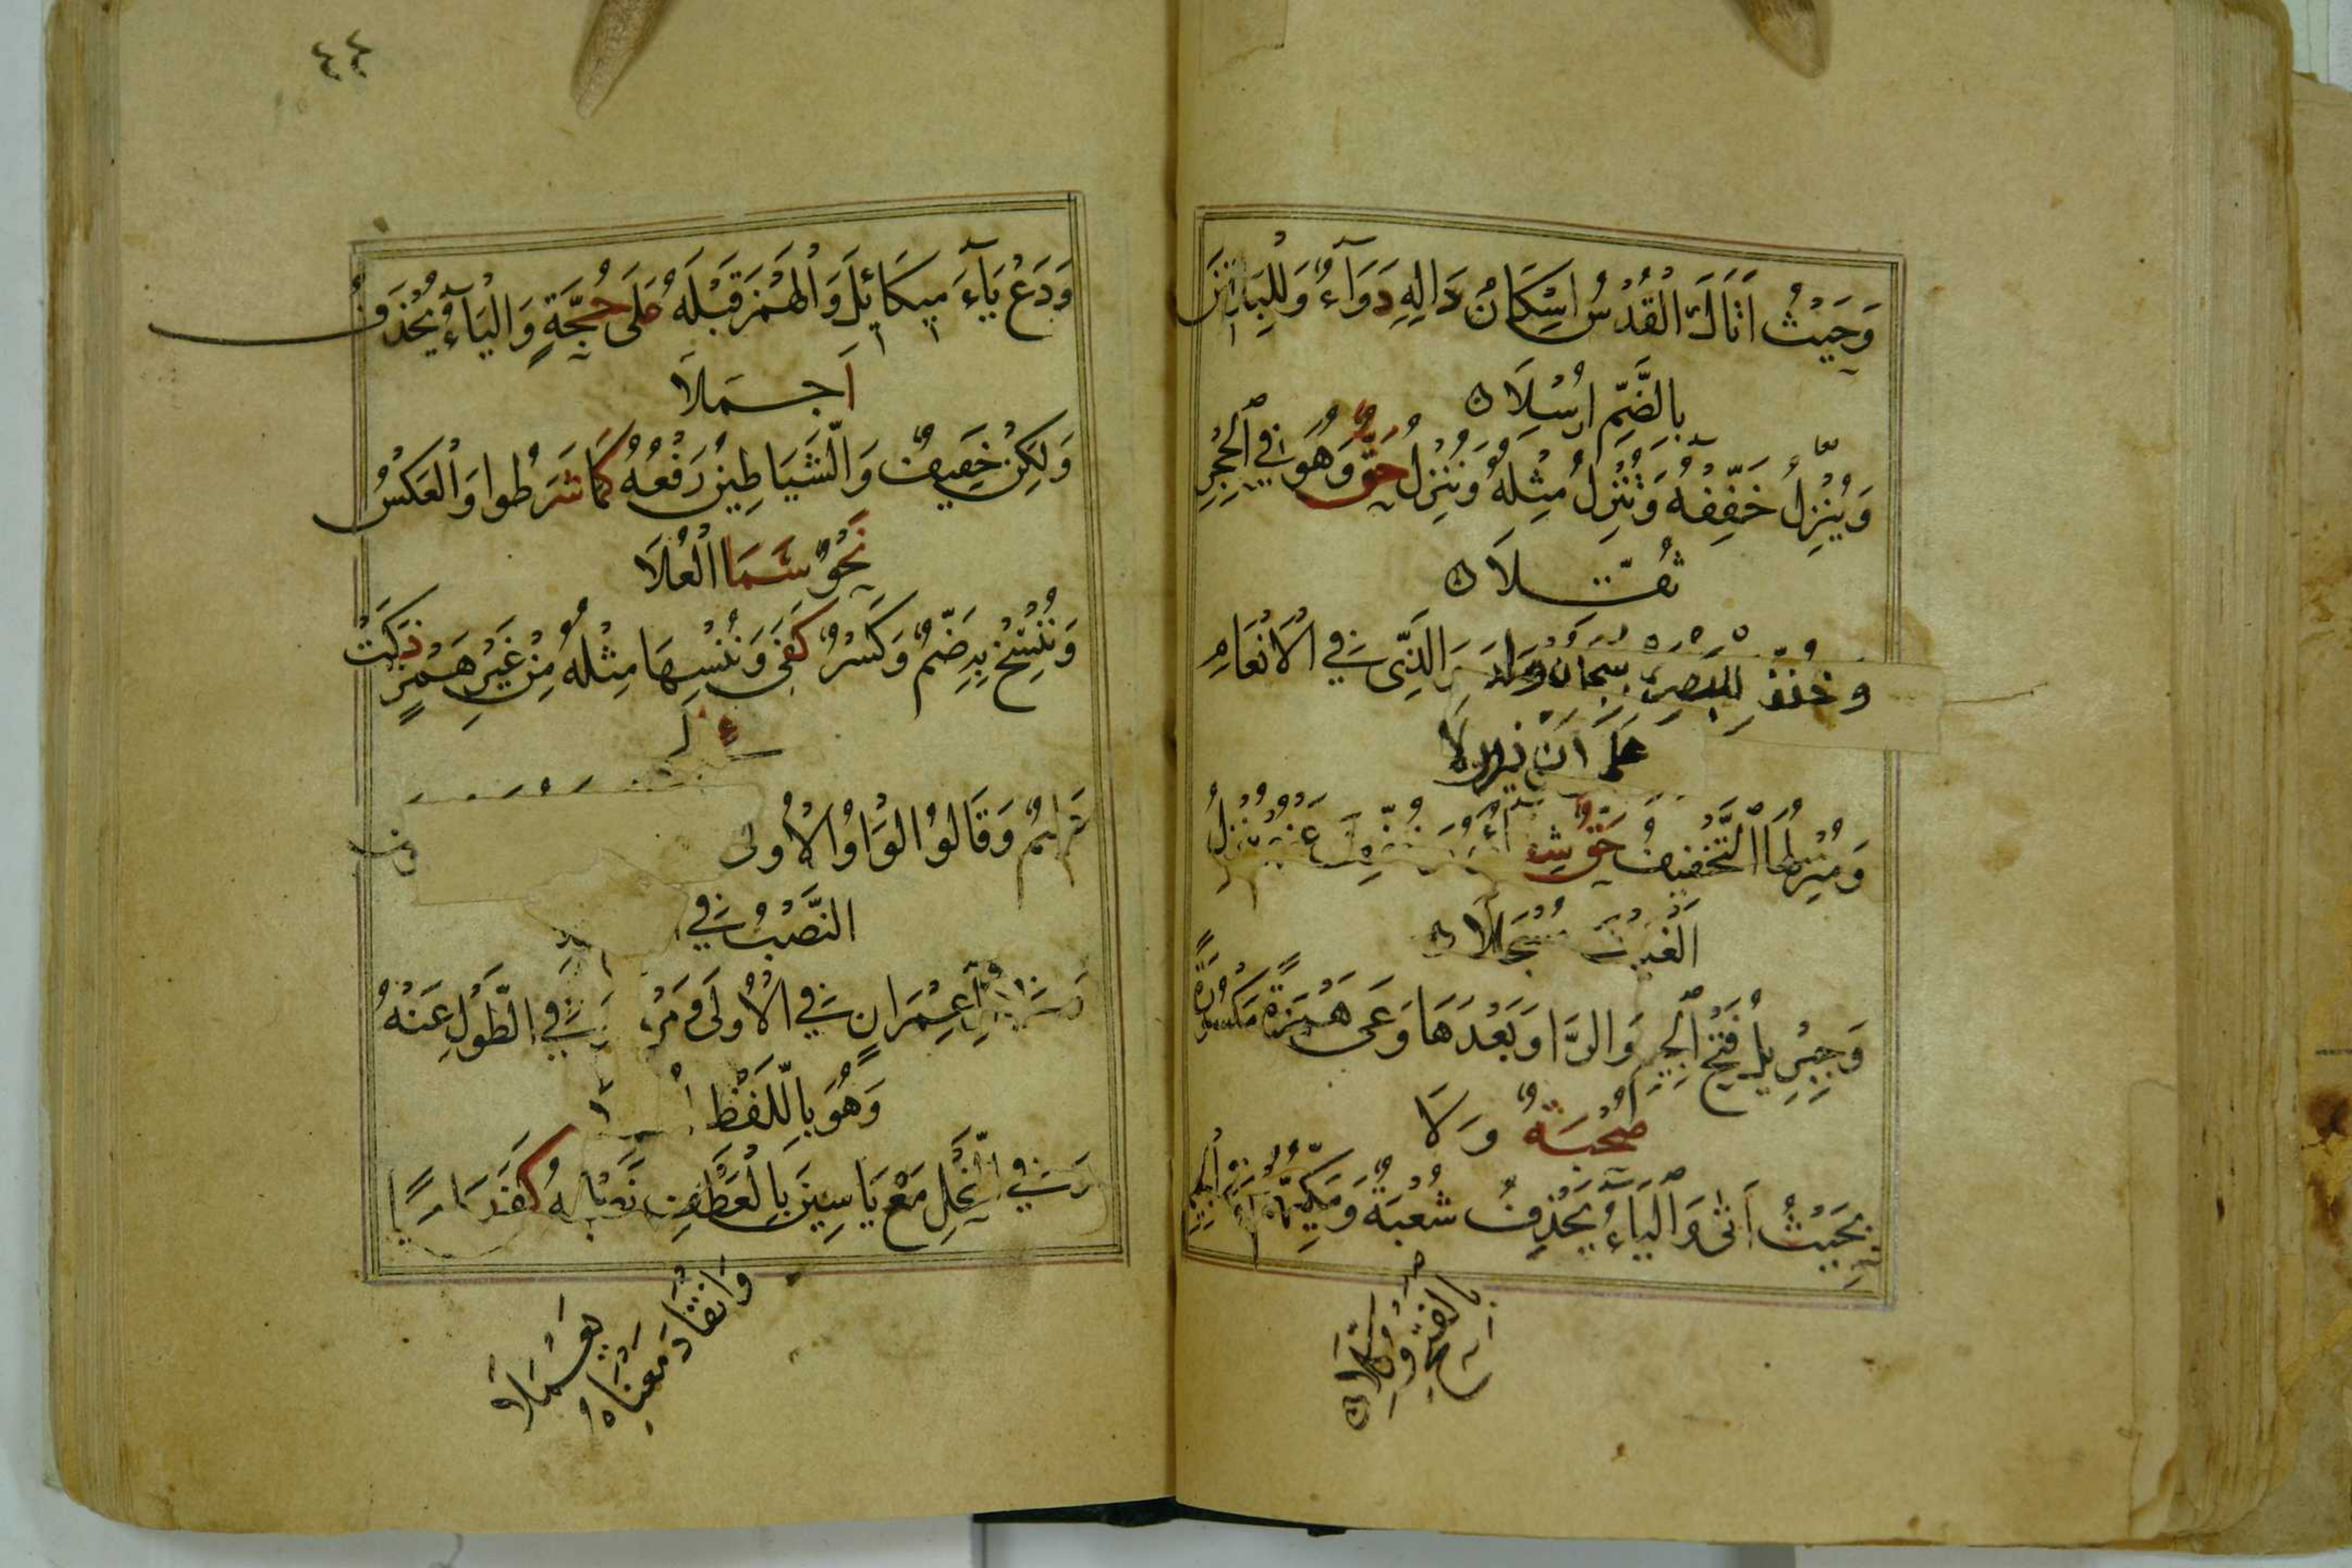 وَحَيْثُ أَتَاكَ الْقُدْسُ إِسْكَانُ دَالِهِ دَوَآءٌ وَلِلْبَاقِينَ
بِالضَّمِّ ارْسِلَا
وَيُنْزِلُ خَفِّفْهُ وَتُنْزِلُ مِثْلُهُ وَنُنْزِلُ حَقٌّ وَهُوَ فِي الْحِجْرِ
ثُقِّلَا
وَخُفِّفَ لِلْبَصْرِي بِسُبْحَانَ وَالَّذِي فِي الْأَنْعَامِ
عَلَى أَنْ يُنَزِّلَا
وَمُنْزِلُهَا التَّخْفِيفُ حَقٌّ شِفَآءُهُ وَخُفِّفَ عَنْهُمْ يُنْزِلُ
الْغَيْثَ مُسْجَلَا
وَجِبْرِيلُ فَتْحُ الْجِيمِ وَالرَّا وَبَعْدَهَا وَعَى هَمْزَةً مَكْسُورَةً
صُحْبَةٌ وِلَا
بِحَيْثُ أَتَى وَالْيَآءُ يَحْذِفُ شُعْبَةٌ وَمَكِّيُّهُمْ فِي الْجِيمِ
بِالْفَتْحِ وُكِّلَا
٤٤
وَدَعْ يَآءَ مِيكَائِيلَ وَالْهَمْزَ قَبْلَهُ عَلَى حُجَّةٍ وَالْيَآءُ يُحْذَفُ
أَجْمَلَا
وَلَكِنْ خَفِيفٌ وَالشَّيَاطِينُ رَفْعُهُ كَمَا شَرَطُوا وَالْعَكْسُ
نَحْوٌ سَمَا الْعُلَا
وَنَنْسَخْ بِهِ ضَمٌّ وَكَسْرٌ كَفَى وَنُنْسِهَا مِثْلُهُ مِنْ غَيْرِ هَمْزٍ ذَكَتْ
عَلِيمٌ وَقَالُوا الْوَاوُ الْأُولَى
النَّصْبُ فِي
عِمْرَانٍ فِي الْأُولَى وَمَرْيَمٍ وَفِي الطَّوْلِ عَنْهُ
وَهُوَ بِاللَّفْظِ
وَفِي النَّحْلِ مَعْ يَاسِينَ بِالْعَطْفِ نَصْبُهُ كَفَى رَاوِيًا
وَانْقَادَ مَعْنَاهُ
يَعْمُلَا